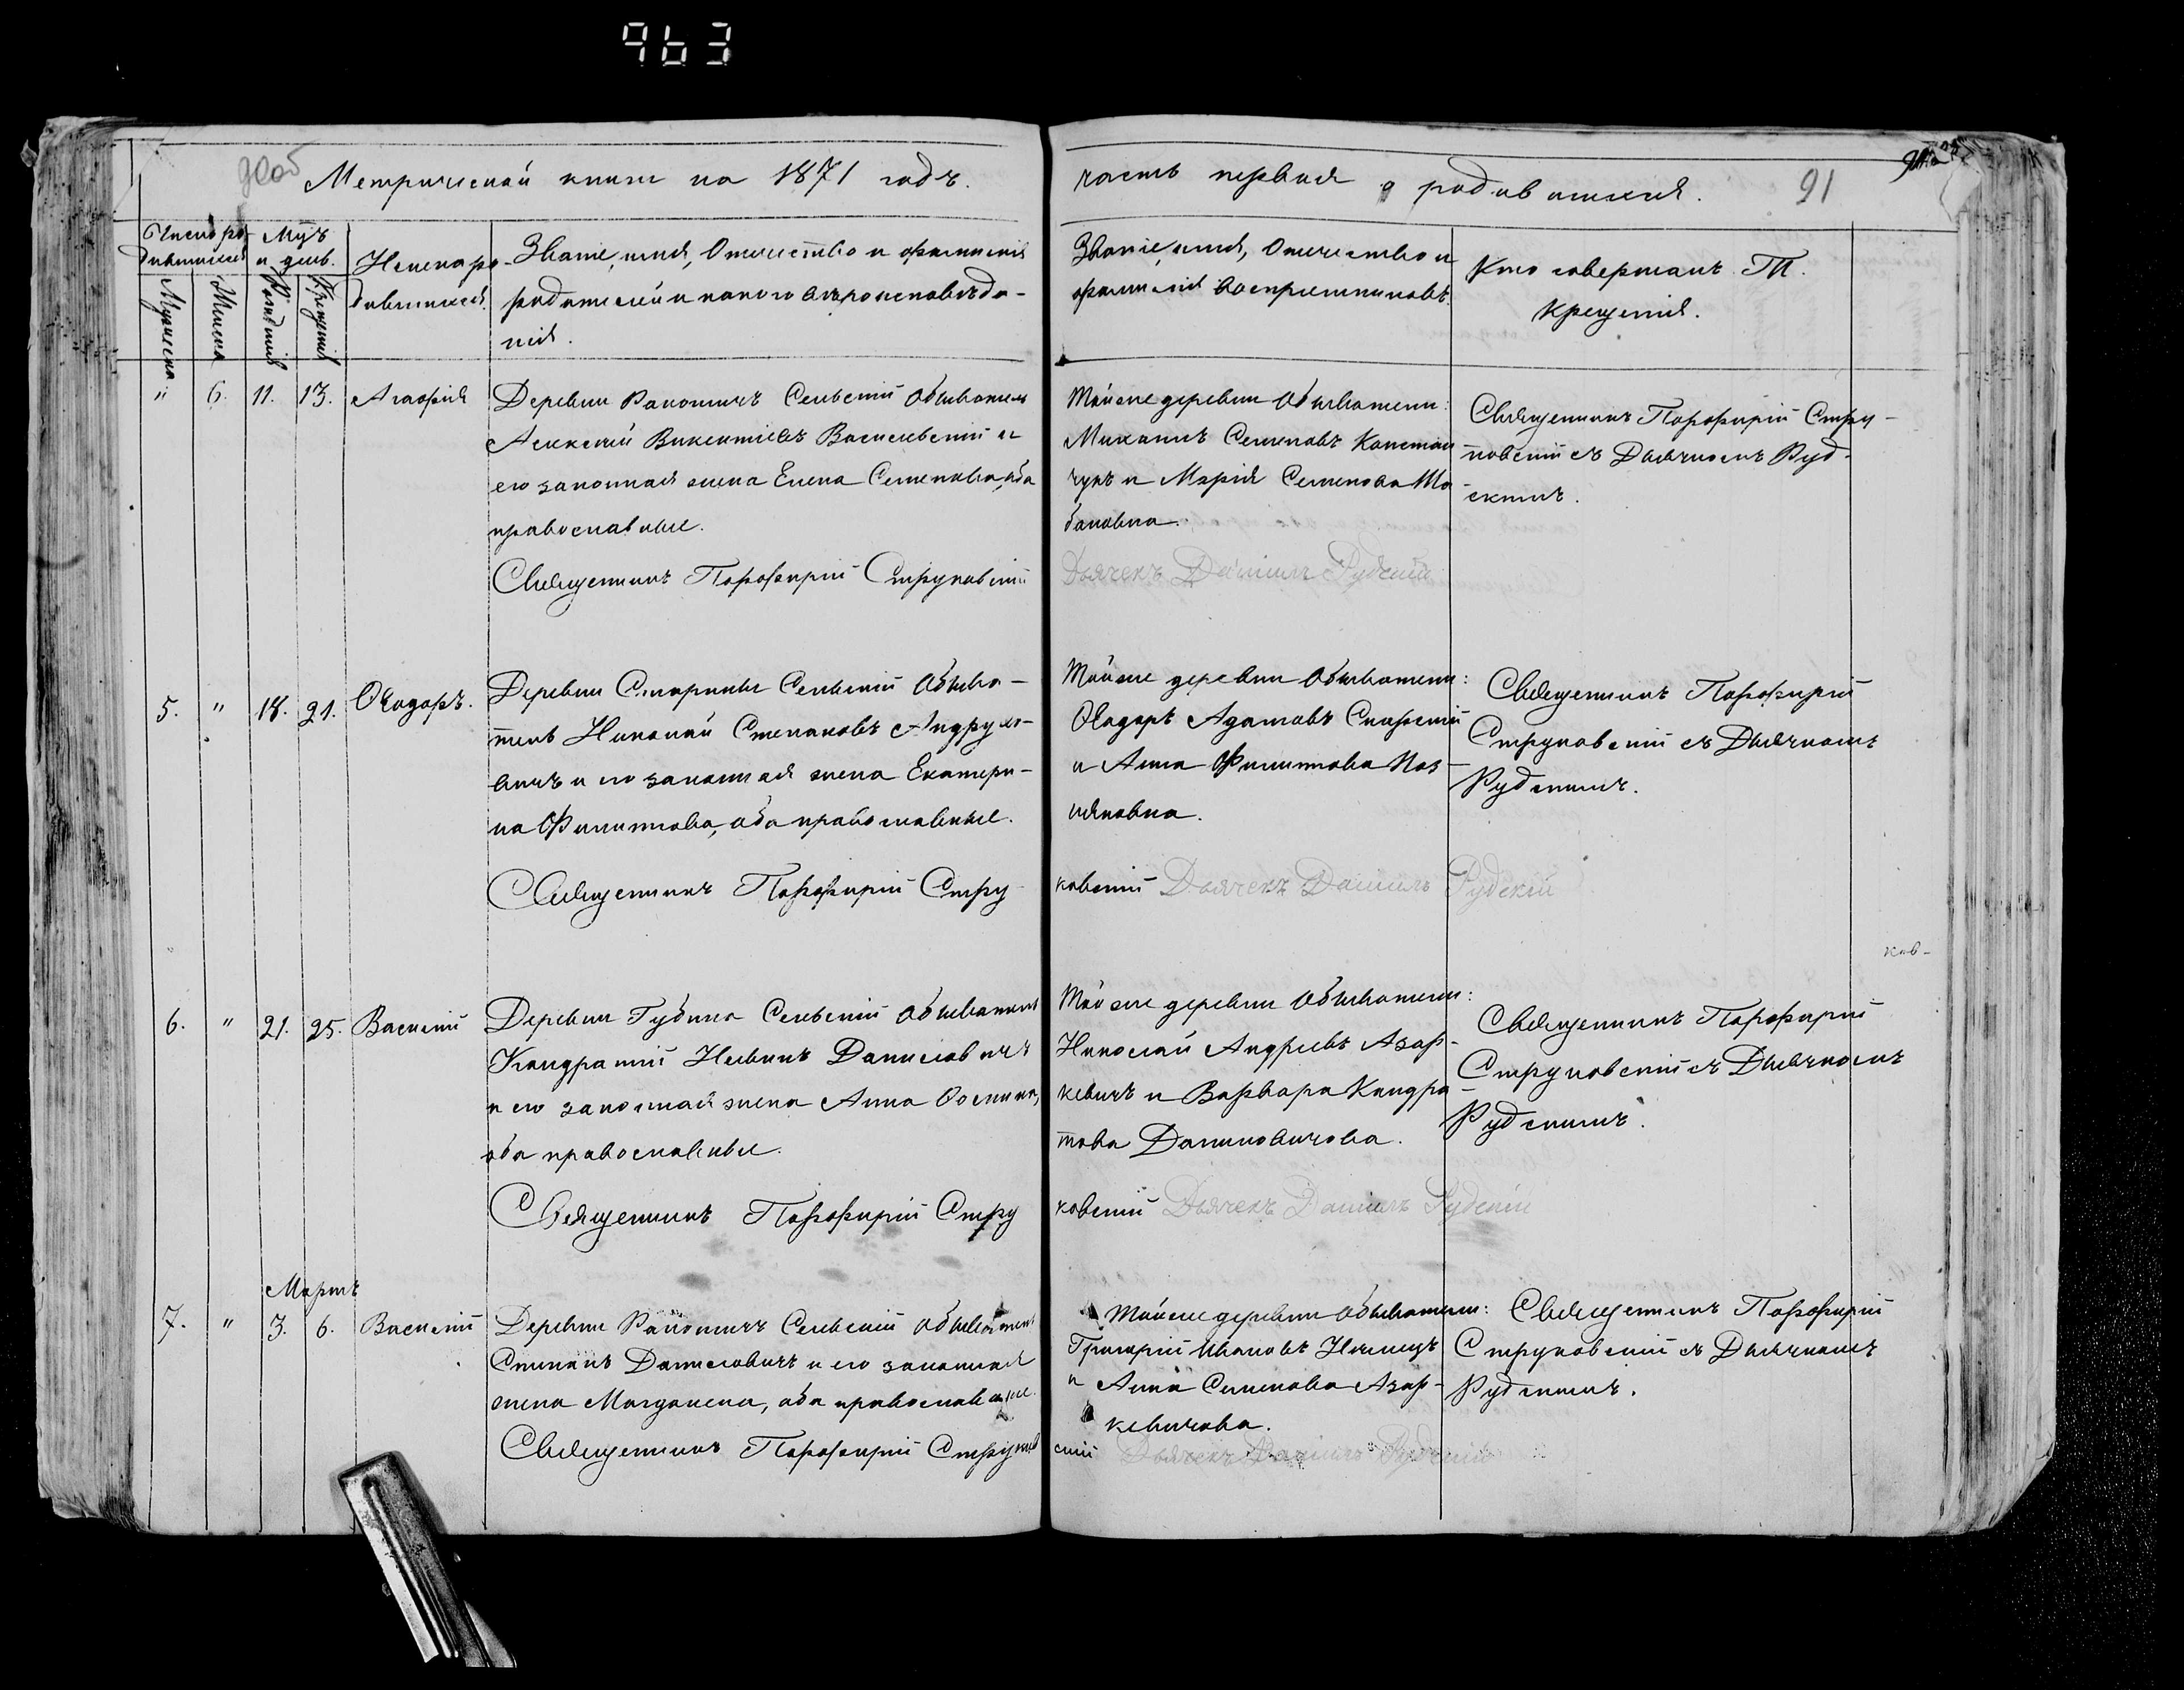 963
Метрической книги на 1871 годъ.
часть первая о родившихся.
91
Число ро-
дившихся
Мужеска
Женска
Мѣс.
и день.
Рожденія
Крещенія
Имена ро-
дившихся.
Званіе, имя, Отчество и фамилія
родителей и какого вѣроисповѣда-
нія.
Званіе, имя, Отчество и
фамилія воспріемниковъ.
Кто совершалъ Т.
Крещенія.
" 6. 11. 13. Агафія
Деревни Раковичъ Сельскій Обыватель
Алексѣй Викентіевъ Василевскій и
его законная жена Елена Семенова, оба
православные.
Священникъ Порофирій Струковскій
Той же деревни Обыватели:
Михаилъ Семеновъ Констан
чукъ и Марія Семенова
бановна.
Дьячекъ Даніилъ Рудскій
Священникъ Порофирій Стру-
ковскій съ Дьячкомъ Руд-
скимъ.
5. " 18. 21. Ѳеодоръ.
Деревни Сельскій Обыва-
тель Николай Степановъ Андруле-
вичъ и его законная жена Екатери-
на Филиппова, оба православные.
Священникъ Порофирій Стру-
Той же деревни Обыватели:
Ѳеодоръ Адамовъ
и Анна Филиппова Коз-
ляковна.
ковскій Дьячекъ Даніилъ Рудскій
Священникъ Порофирій
Струковскій съ Дьячкомъ
Рудскимъ.
ков-
6. " 21. 25. Василій
Деревни Губина Сельскій Обыватель
Кондратій Данилевичъ
и его законная жена Анна Ѳомина,
оба православные.
Священникъ Порофирій Стру
Той же деревни Обыватели:
Николай Андреевъ Азар-
кевичъ и Варвара Кондра-
това Далиновичова.
ковскій Дьячекъ Даніилъ Рудскій
Священникъ Порофирій
Струковскій съ Дьячкомъ
Рудскимъ.
Мартъ
7. " 3. 6. Василій
Деревни Раковичъ Сельскій Обыватель
Степанъ Данилевичъ и его законная
жена Магдалена, оба православные.
Священникъ Порофирій Струков
Той же деревни Обыватели:
Григорій Ивановъ
и Анна Семенова Азар-
кевичова.
скій Дьячекъ Даніилъ Рудскій
Священникъ Порофирій
Струковскій съ Дьячкомъ
Рудскимъ.